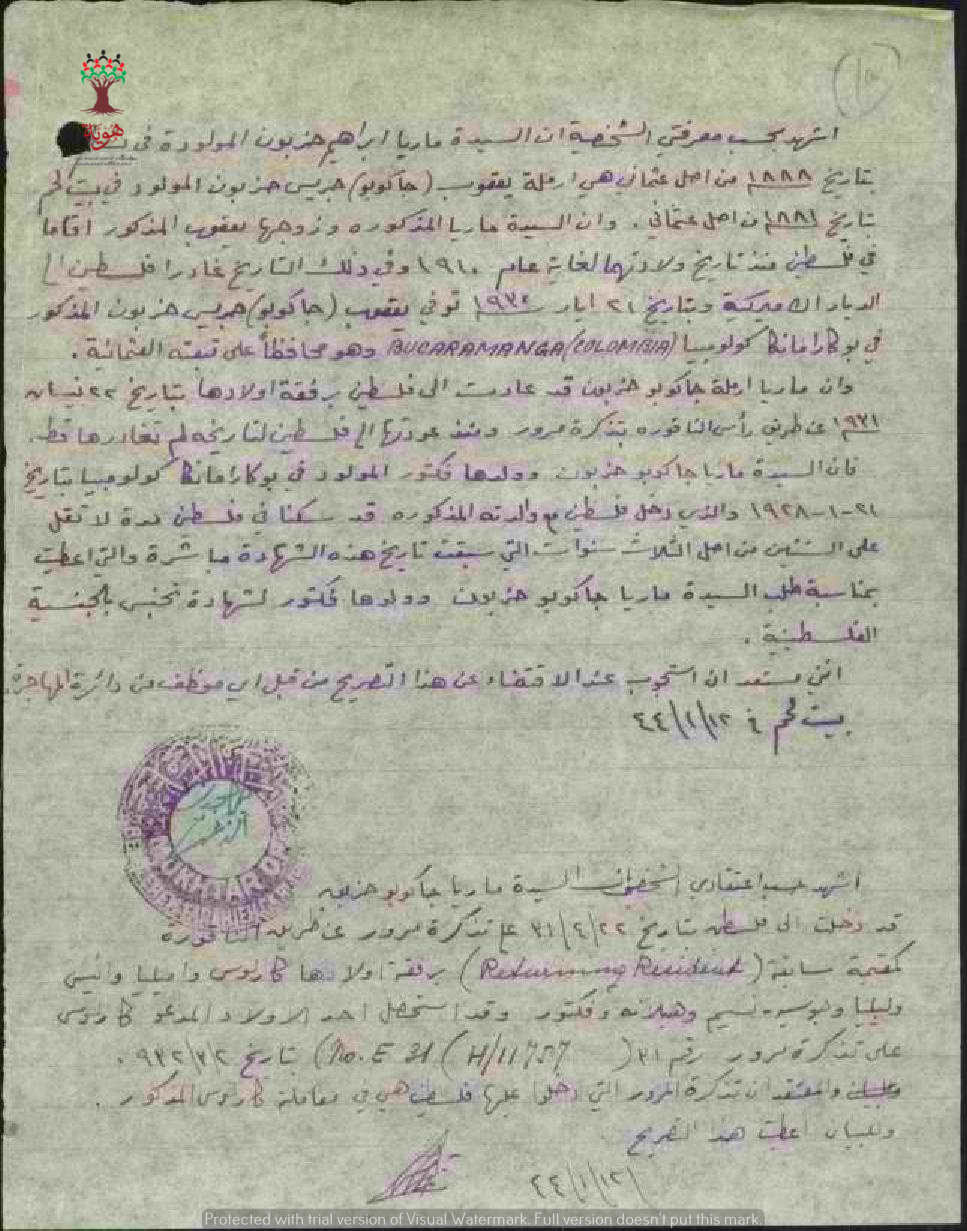 هوية
اشهد بحسب معرفتي الشخصية ان السيدة ماريا ابراهيم حزبون المولودة في
بتاريخ ١٨٨٨ من اصل عثماني هي ارملة يعقوب (جاكوبو) جريس حزبون المولود في بيت لحم
بتاريخ ١٨٨١ من اصل عثماني . وان السيدة ماريا المذكوره وزوجها يعقوب المذكور اقاما
في فلسطين منذ تاريخ ولادتهما لغاية عام ١٩١٠ وفي ذلك التاريخ غادرا فلسطين الى
الديار الاميركية وبتاريخ ٢١ ايار توفي يعقوب (جاكوبو) جريس حزبون المذكور
في بوكارامانكا كولومبيا BUCARAMANGA (COLOMBIA) وهو محافظاً على تبعته العثمانية .
وان ماريا ارملة جاكوبو حزبون قد عادت الى فلسطين برفقة اولادها بتاريخ ٢٢ نيسان
١٩٣١ عن طريق رأس الناقوره بتذكرة مرور ومنذ عودتها الى فلسطين لتاريخه لم تغادرها قط .
فان السيدة ماريا جاكوبو حزبون وولدها فكتور المولود في بوكارامانكا كولومبيا بتاريخ
٢١-١-١٩٢٨ والذي دخل فلسطين مع والدته المذكوره قد سكنا في فلسطين مدة لا تقل
على السنتين من اصل الثلاث سنوات التي سبقت تاريخ هذه الشهادة مباشرة والتي اعطيت
بمناسبة طلب السيدة ماريا جاكوبو حزبون وولدها فكتور لشهادة تجنس بالجنسية
الفلسطينية .
انني مستعد ان استجوب عند الاقتضاء عن هذا التصريح من قبل اي موظف من دائرة المهاجرة .
بيت لحم في ١٢/١/٤٤
MUKHTAR OF
اشهد حسب اعتقادي الشخصي ان السيدة ماريا جاكوبو حزبون
قد دخلت الى فلسطين بتاريخ ٢٢/٤/٣١ على تذكرة مرور عن طريق الناقورة
كمقيمة سابقة (Returning Resident) برفقة اولادها كارلوس واميليا وانيس
وليليا وجوسيه نسيم وهيلانه وفكتور وقد استحصل احد الاولاد المدعو كارلوس
على تذكرة مرور رقم ٣١ (No. E 31 (H/11757 بتاريخ ٢/٢/٩٣٢ .
والمعتقد ان تذكرة المرور التي دخلوا عليها فلسطين هي في معاملة كارلوس المذكور .
وللبيان اعطيت هذا التصريح
١٢/١/٤٤
Protected with trial version of Visual Watermark. Full version doesn't put this mark.